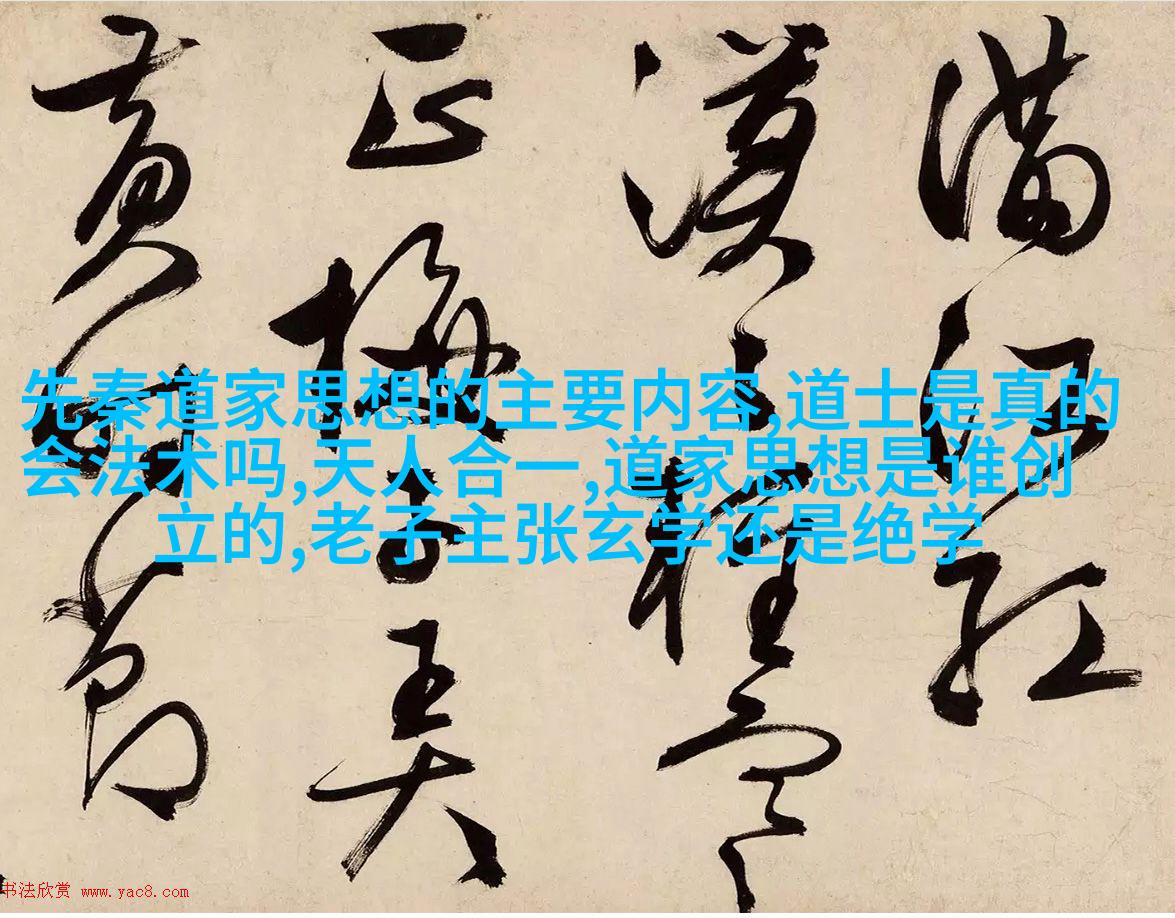 满江红
漠漠轻寒
正梅子弄
黄时节
先秦道家思想的主要内容,道士是真的
会法术吗,天人合一,道家思想是谁创
立的,老子主张玄学还是绝学
书法欣赏 www.yac8.com